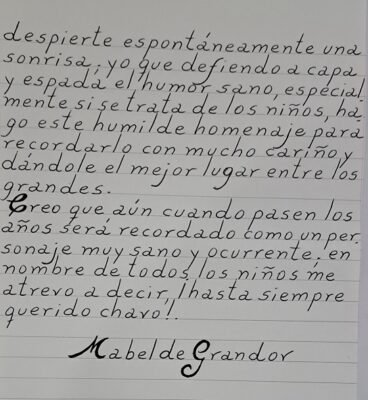 despierte espontáneamente una
sonrisa, yo que defiendo a capa
y espada el humor sano, especial
mente si se trata de los niños, ha,
go este humilde homenaje para
recordarlo con mucho cariño y
dándole el mejor lugar entre los
grandes.
Creo que aún cuando pasen los
años será recordado como un per.
sonaje muy sano y ocurrente, en
nombre de todos los niños me
atrevo a decir, ¡hasta siempre
querido chavo!.
Mabel de Grandor